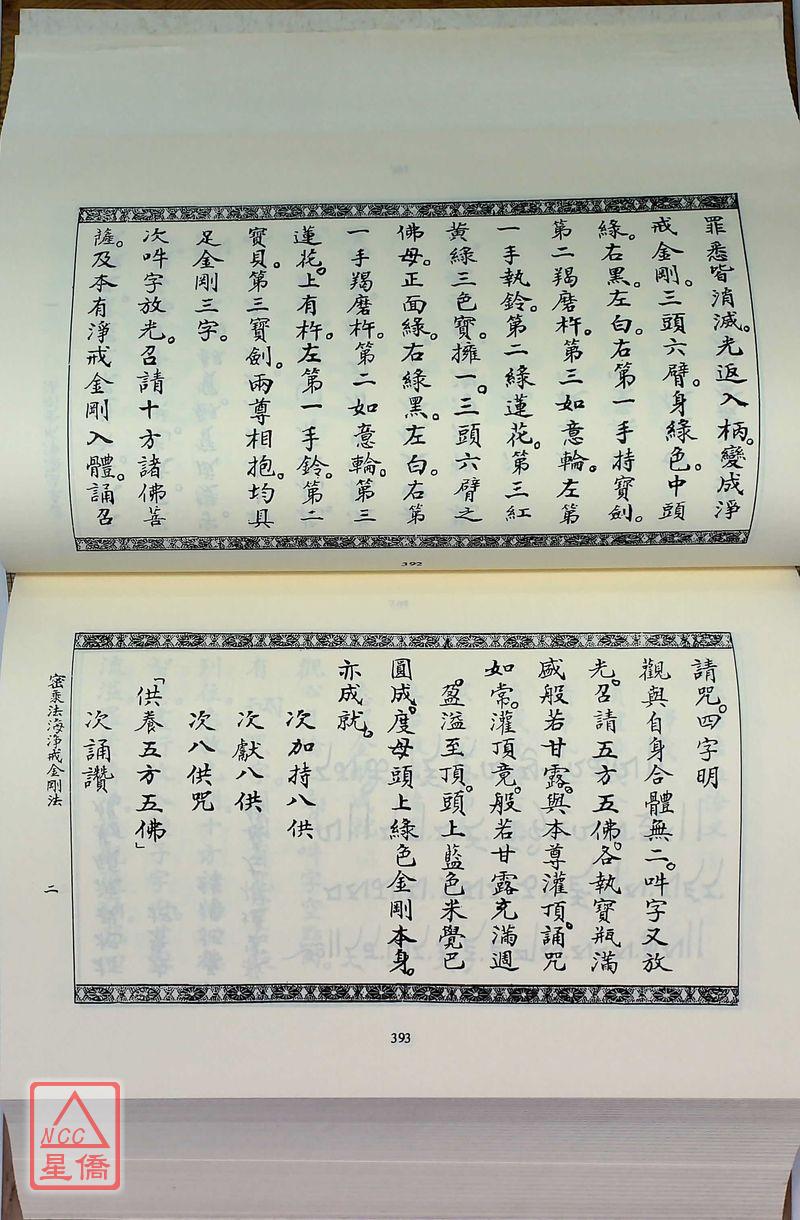 罪悉皆消滅。光返入柄。變成淨
戒金剛。三頭六臂。身綠色。中頭
綠。右黑。左白。右第一手持寶劍。
第二羯磨杵。第三如意輪。左第
一手執鈴。第二綠蓮花。第三紅
黃綠三色寶。擁一。三頭六臂之
佛母。正面綠。右綠黑。左白。右第
一手羯磨杵。第二如意輪。第三
蓮花。上有杵。左第一手鈴。第二
寶貝。第三寶劍。兩尊相抱。均具
足金剛三字。
次吽字放光。召請十方諸佛菩
薩。及本有淨戒金剛入體。誦召
392
請咒。四字明
觀與自身合體無二。吽字又放
光。召請五方五佛。各執寶瓶滿
盛般若甘露。與本尊灌頂。誦咒
如常。灌頂竟。般若甘露充滿週
。盈溢至頂。頭上藍色米覺巴
圓成。度母頭上綠色金剛本身。
亦成就。
次加持八供
次獻八供
次八供咒
「供養五方五佛」
次誦讚
密乘法海淨戒金剛法
二
393
NCC
星僑